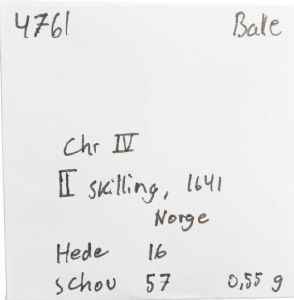 4761 Bale
Chr IV
II skilling, 1641
Norge
Hede 16
Schou 57 0,55 g